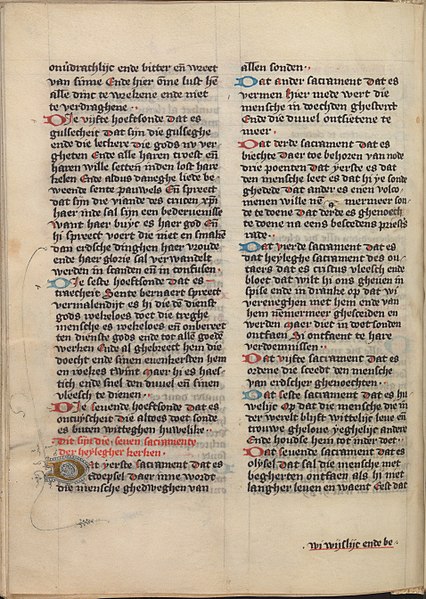 onverdrachlijc ende bitter en̄ wreet
van sinne Ende hier o̅me lust hē
alle dinc te wekene ende niet
te verdraghene ..
Die vijfte hoeftsonde dat es
gulsecheit Dat sijn die gulseghe
ende die leckere die gods v̄
gheten Ende alle haren troest en̄
haren wille setten inden lost hare
kelen Ende aldus daneghe liede be
weende sente pauwels En̄ spreect
dat sijn die viande des cruten xp̄i
haer inde sal sijn een bederuenisse
Want haer buyc es haer god En̄
hi spreect voert die met en smaken
dan erdsche dinghen haer vroude
ende haer glorie sal verwandelt
werden in scanden en̄ in confusen.
Die seste hoeftsonde dat es
traecheit Sente bernaert spreect
vermalendijt es hi die de dienst
gods roekeloes doet die treghe
mensche es roekeloes en̄ onbereet
ten dienste gods ende tot alle goede
werken Ende al ghebreect hem die
doecht ende sinen euenkersten hem
en roekes twint Maer hi es haes
tich ende snel den duuel en̄ sinen
vleesch te dienen.
Die seuende hoeftsonde dat es
oncuyscheit die altoes doet sonde
es buten wittegen huwelike.
Dit sijn die seuen sacramente
der heylegher kerken.
Dat yerste sacrament dat es
doepsel Daer inne wordt
die mensche ghedweghen van
allen sonden.
Dat ander sacrament dat es
vermen Hier mede wert die
mensche in doechden ghesterct
Ende die duuel ontsietene te
meer.
Dat derde sacrament dat es
biechte Daer toe behoren van node
drie poenten Dat yerste es dat
den mensche leet es dat hi ye son
ghedede Dat ander es enen volco
menen wille nē mermeer son
de te doene Dat derde es ghenoech
te doene na eens bescedens priesters
rade.
Dat vierde sacrament dat es
dat heyleghe sacrament des ou
taers dat es cristus vleesch ende
bloet dat wilt hi ons gheuen in
spise ende in dranke op dat wi
vereneghen met hem ende van
hem nēmermeer ghesceiden en
werden Maer diet in doet sonden
ontfaen Si ontfaent te hare
verdomnissen.
Dat vijfte sacrament dat es
ordene die sceedt den mensche
van erdscher ghenoechten.
Dat seste sacrament dat es hu
welijc Op dat die mensche die in
der werelt blijft wittelijc leue en̄
trouwe gheloue yeghelijc andere
Ende houdse hem tot inder doet.
Dat seuende sacrament dat es
olysel Dat sal die mensche met
begherten ontfaen als hi niet
langher leuen en waent Eest dat
. wi wijslijc ende be .